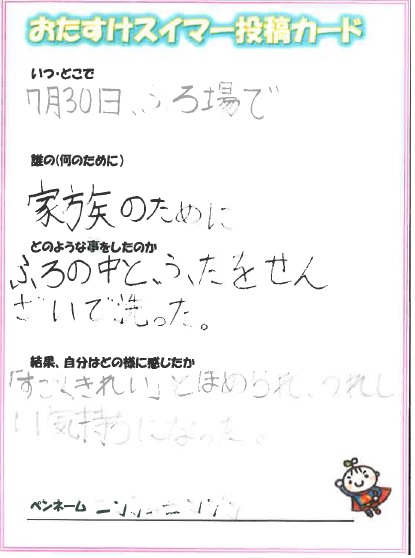 おたすけスイマー投稿カード
いつ・どこで
7月30日、ふろ場で
誰の(何のために)
家族のために
どのような事をしたのか
ふろの中と、う、たをせん
ざいで洗った。
結果、自分はどの様に感じたか
「すごくきれい」とほめられ、うれし
い気持ちになった。
ペンネーム